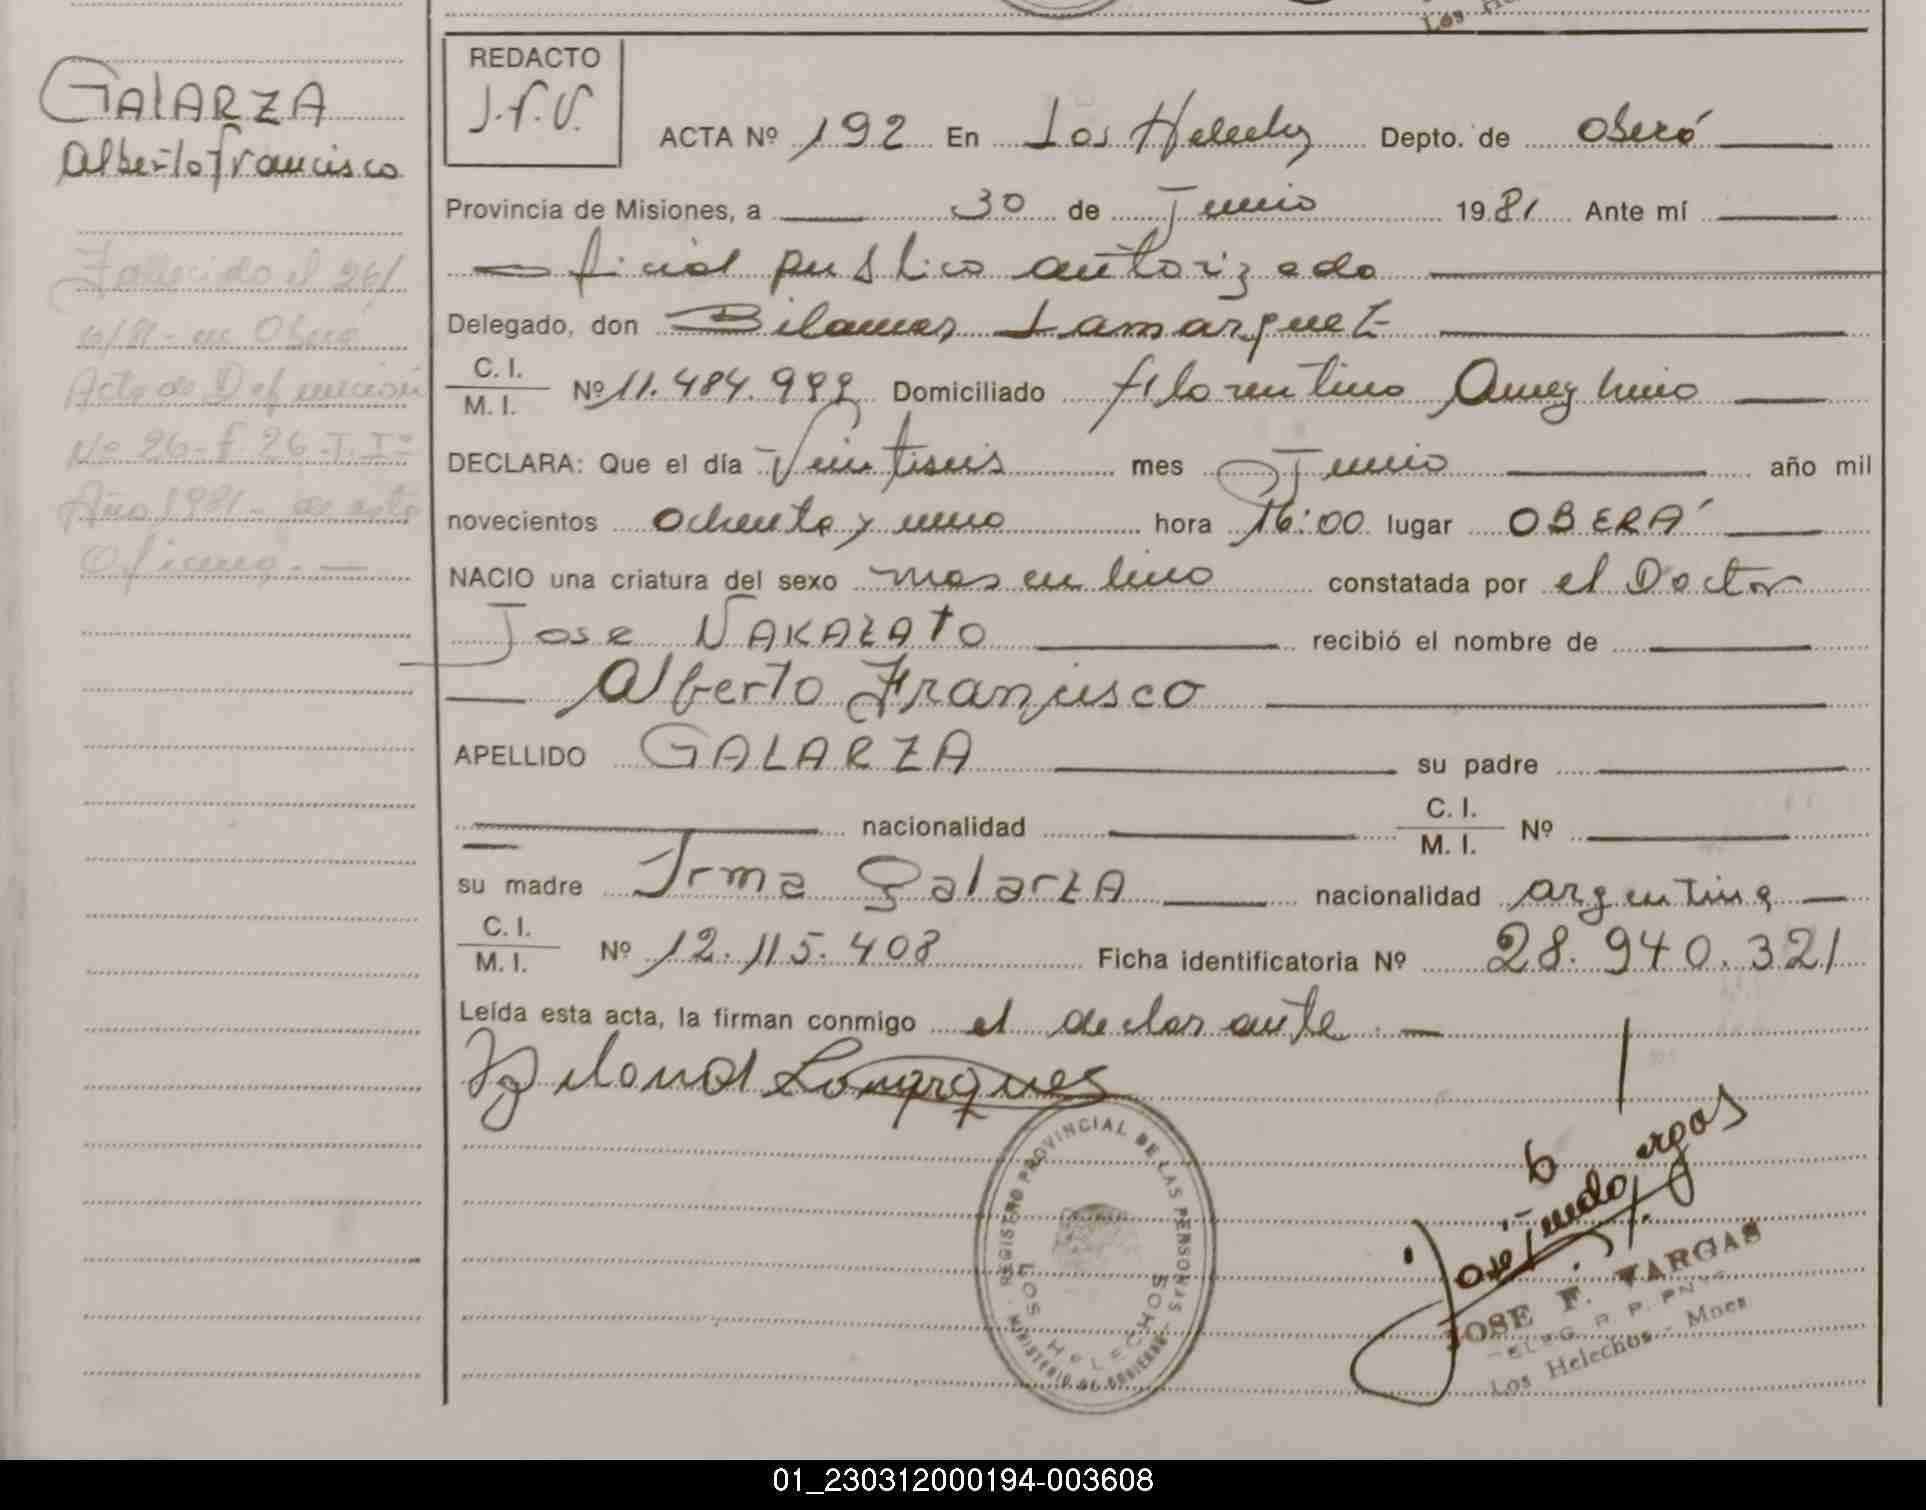 Los
GALARZA
Alberto Francisco
Fallecido el 26/
6/81 - en Oberá
Acta de Defunción
Nº 26 - f. 26 - T. Iº
Año 1981 - de esta
Oficina. —
REDACTO
J.F.V.
ACTA Nº 192 En Los Helechos Depto. de Oberá
Provincia de Misiones, a 30 de Junio 1981 Ante mí
oficial publico autorizado
Delegado, don Bilamar Lamarquet
C. I.
M. I. Nº 11.484.999 Domiciliado florentino Ameghino
DECLARA: Que el día Veintiseis mes Junio año mil
novecientos ochenta y uno hora 16:00 lugar OBERÁ
NACIO una criatura del sexo masculino constatada por el Doctor
Jose NAKAZATO recibió el nombre de
Alberto Francisco
APELLIDO GALARZA su padre
nacionalidad C. I.
M. I. Nº
su madre Irma Galarza nacionalidad argentina
C. I.
M. I. Nº 12.115.408 Ficha identificatoria Nº 28.940.321
Leída esta acta, la firman conmigo el declarante. —
REGISTRO PROVINCIAL DE LAS PERSONAS
LOS HELECHOS
MINISTERIO DE GOBIERNO
JOSE F. VARGAS
Los Helechos - Mnes
01_230312000194-003608